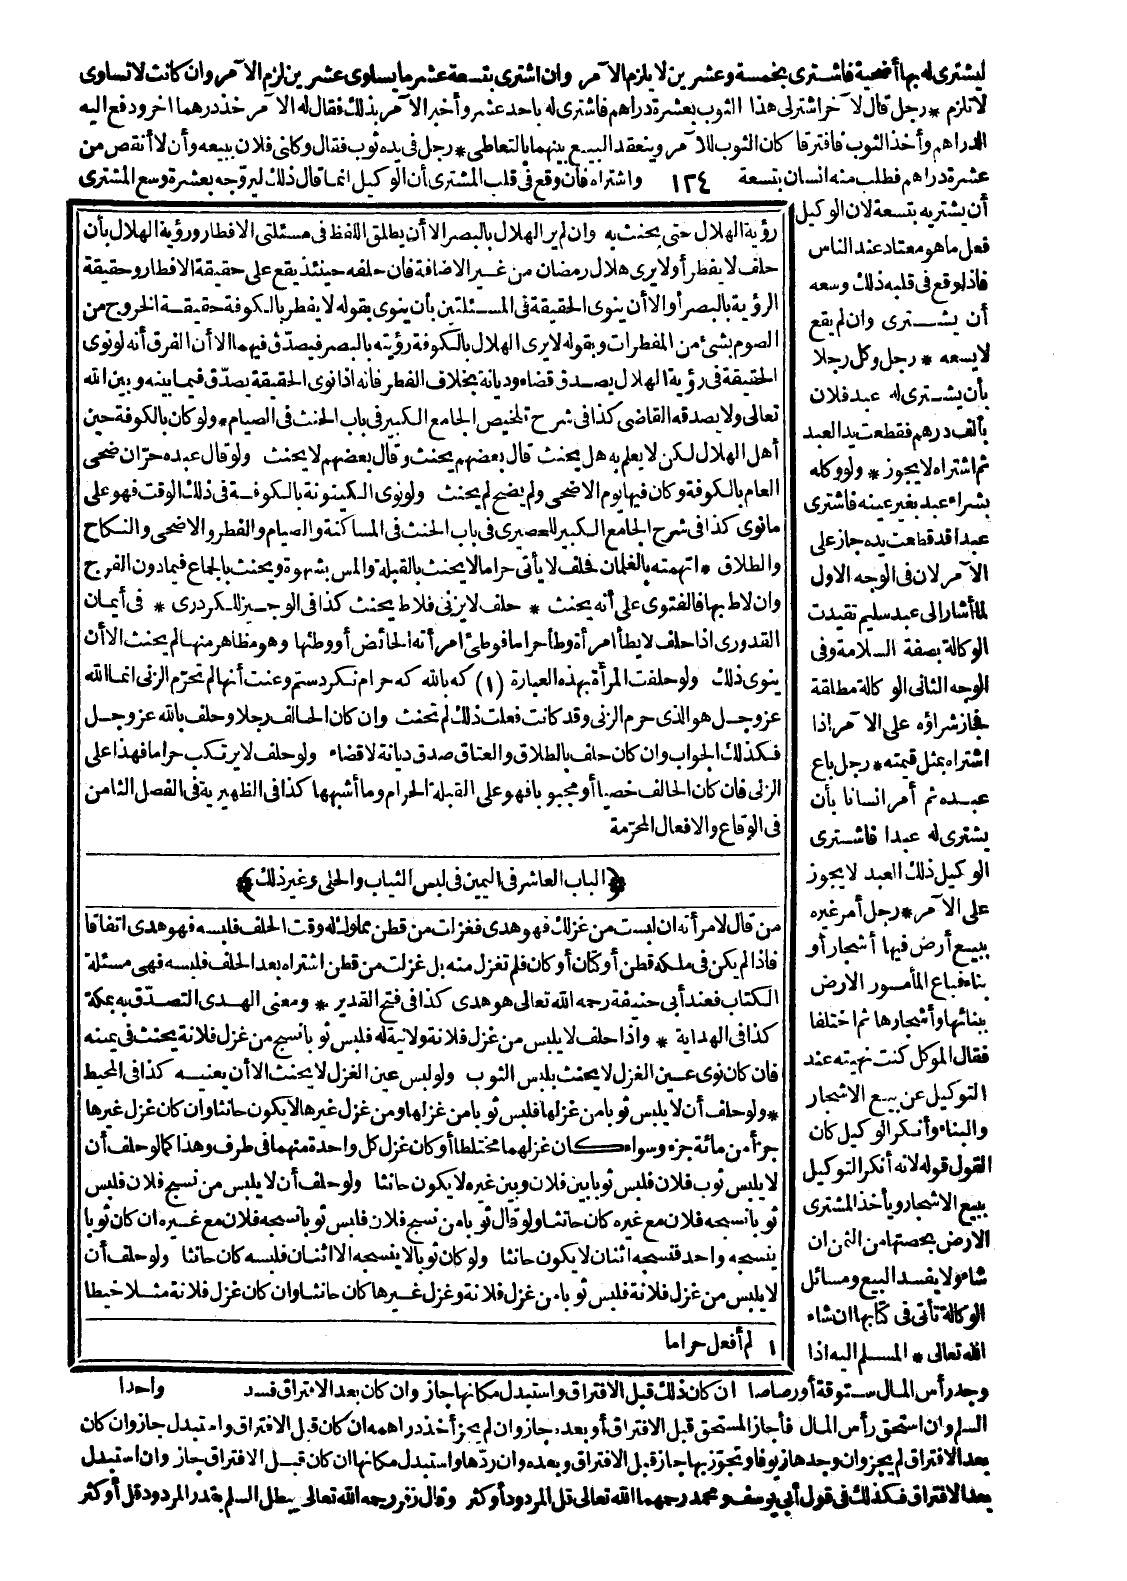 ليشترى له بها أضحية فاشترى بخمسة وعشرين لا يلزم الآمر وان اشترى بتسعة عشر ما يساوى عشرين لزم الآمر وان كانت لا تساوى
لا تلزم * رجل قال لآخر اشتر لى هذا الثوب بعشرة دراهم فاشترى له باحد عشر وأخبر الآمر بذلك فقال له الآمر خذ درهما آخر ودفع اليه
الدراهم وأخذ الثوب فافترقا كان الثوب للآمر وينعقد البيع بينهما بالتعاطى * رجل فى يده ثوب فقال وكلنى فلان ببيعه وأن لا أنقص من
عشرة دراهم فطلب منه انسان بتسعة ١٢٤ واشتراه فان وقع فى قلب المشترى أن الوكيل انما قال ذلك ليروّجه بعشرة وسع المشترى
أن يشتريه بتسعة لان الوكيل
فعل ما هو معتاد عند الناس
فاذا وقع فى قلبه ذلك وسعه
أن يشترى وان لم يقع
لا يسعه * رجل وكل رجلا
بأن يشترى له عبد فلان
بألف درهم فقطعت يد العبد
ثم اشتراه لا يجوز * ولو وكله
بشراء عبد بغير عينه فاشترى
عبدا قد قطعت يده جاز على
الآمر لان فى الوجه الاول
لما أشار الى عبد سليم تقيدت
الوكالة بصفة السلامة وفى
الوجه الثانى الوكالة مطلقة
فجاز شراؤه على الآمر اذا
اشتراه بمثل قيمته * رجل باع
عبده ثم أمر انسانا بأن
يشترى له عبدا فاشترى
الوكيل ذلك العبد لا يجوز
على الآمر * رجل أمر غيره
ببيع أرض فيها أشجار أو
بناء فباع المأمور الارض
ببنائها وأشجارها ثم اختلفا
فقال الموكل كنت نهيته عند
التوكيل عن بيع الاشجار
والبناء وأنكر الوكيل كان
القول قوله لانه أنكر التوكيل
ببيع الاشجار ويأخذ المشترى
الارض بحصتها من الثمن ان
شاء ولا يفسد البيع ومسائل
الوكالة تأتى فى كتابها ان شاء
الله تعالى * المسلم اليه اذا
رؤية الهلال حتى يحنث به وان لم ير الهلال بالبصر الا أن يطلق اللفظ فى مسئلتى الافطار ورؤية الهلال بأن
حلف لا يفطر أو لا يرى هلال رمضان من غير الاضافة فان حلفه حينئذ يقع على حقيقة الافطار وحقيقة
الرؤية بالبصر أو الا أن ينوى الحقيقة فى المسئلتين بأن ينوى بقوله لا يفطر بالكوفة حقيقة الخروج من
الصوم بشئ من المفطرات وبقوله لا يرى الهلال بالكوفة رؤيته بالبصر فيصدّق فيهما الا أن الفرق أنه لو نوى
الحقيقة فى رؤية الهلال يصدق قضاء وديانة بخلاف الفطر فانه اذا نوى الحقيقة يصدّق فيما بينه وبين الله
تعالى ولا يصدقه القاضى كذا فى شرح تلخيص الجامع الكبير فى باب الحنث فى الصيام * ولو كان بالكوفة حين
أهل الهلال لكن لا يعلم به هل يحنث قال بعضهم يحنث وقال بعضهم لا يحنث ولو قال عبده حرّ ان ضحى
العام بالكوفة وكان فيها يوم الاضحى ولم يضح لم يحنث ولو نوى الكينونة بالكوفة فى ذلك الوقت فهو على
ما نوى كذا فى شرح الجامع الكبير للحصيرى فى باب الحنث فى المساكنة والصيام والفطر والاضحى والنكاح
والطلاق * اتهمته بالغلمان فحلف لا يأتى حراما لا يحنث بالقبلة والمس بشهوة ويحنث بالجماع فيما دون الفرج
وان لاط بها فالفتوى على أنه يحنث * حلف لا يزنى فلاط يحنث كذا فى الوجيز للكردرى * فى أيمان
القدورى اذا حلف لا يطأ امرأة وطأ حراما فوطئ امرأته الحائض أو وطئها وهو مظاهر منها لم يحنث الا أن
ينوى ذلك ولو حلفت المرأة بهذه العبارة (١) كه بالله كه حرام نكردستم وعنت أنها لم تحرّم الزنى انما الله
عز وجل هو الذى حرم الزنى وقد كانت فعلت ذلك لم تحنث وان كان الحالف رجلا وحلف بالله عز وجل
فكذلك الجواب وان كان حلف بالطلاق والعتاق صدق ديانة لا قضاء ولو حلف لا يرتكب حراما فهذا على
الزنى فان كان الحالف خصيا أو مجبوبا فهو على القبلة الحرام وما أشبهها كذا فى الظهيرية فى الفصل الثامن
فى الوقاع والافعال المحرّمة
﴿الباب العاشر فى اليمين فى لبس الثياب والحلى وغير ذلك﴾
من قال لامرأته ان لبست من غزلك فهو هدى فغزلت من قطن مملوك له وقت الحلف فلبسه فهو هدى اتفاقا
فاذا لم يكن فى ملكه قطن أو كتان أو كان فلم تغزل منه بل غزلت من قطن اشتراه بعد الحلف فلبسه فهى مسئلة
الكتاب فعند أبى حنيفة رحمه الله تعالى هو هدى كذا فى فتح القدير * ومعنى الهدى التصدّق به بمكة
كذا فى الهداية * واذا حلف لا يلبس من غزل فلانة ولا نية له فلبس ثوبا نسج من غزل فلانة يحنث فى يمينه
فان كان نوى عين الغزل لا يحنث بلبس الثوب ولو لبس عين الغزل لا يحنث الا أن يعنيه كذا فى المحيط
* ولو حلف أن لا يلبس ثوبا من غزلها فلبس ثوبا من غزلها ومن غزل غيرها لا يكون حانثا وان كان غزل غيرها
جزأ من مائة جزء وسواء كان غزلهما مختلطا أو كان غزل كل واحدة منهما فى طرف وهذا كما لو حلف أن
لا يلبس ثوب فلان فلبس ثوبا بين فلان وبين غيره لا يكون حانثا ولو حلف أن لا يلبس من نسج فلان فلبس
ثوبا نسجه فلان مع غيره كان حانثا ولو قال ثوبا من نسج فلان فلبس ثوبا نسجه فلان مع غيره ان كان ثوبا
ينسجه واحد فنسجه اثنان لا يكون حانثا ولو كان ثوبا لا ينسجه الا اثنان فلبسه كان حانثا ولو حلف أن
لا يلبس من غزل فلانة فلبس ثوبا من غزل فلانة وغزل غيرها كان حانثا وان كان غزل فلانة مثلا خيطا
١ لم أفعل حراما
واحدا
وجد رأس المال ستوقة أو رصاصا ان كان ذلك قبل الافتراق واستبدل مكانها جاز وان كان بعد الافتراق فسد
السلم وان استحق رأس المال فأجاز المستحق قبل الافتراق أو بعده جاز وان لم يجز أخذ دراهمه ان كان قبل الافتراق واستبدل جاز وان كان
بعد الافتراق لم يجز وان وجدها زيوفا وتجوّز بها جاز قبل الافتراق وبعده وان ردّها واستبدل مكانها ان كان قبل الافتراق جاز وان استبدل
بعد الافتراق فكذلك فى قول أبى يوسف ومحمد رحمهما الله تعالى قل المردود أو كثر وقال زفر رحمه الله تعالى يبطل السلم بقدر المردود قل أو كثر